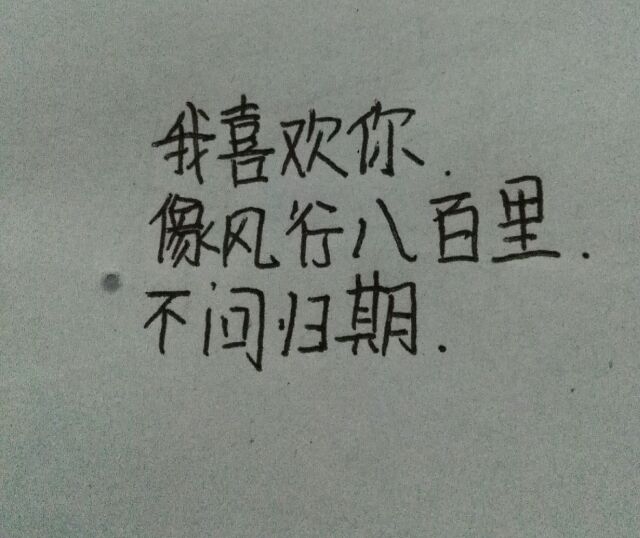 我喜欢你.
像风行八百里.
不问归期.